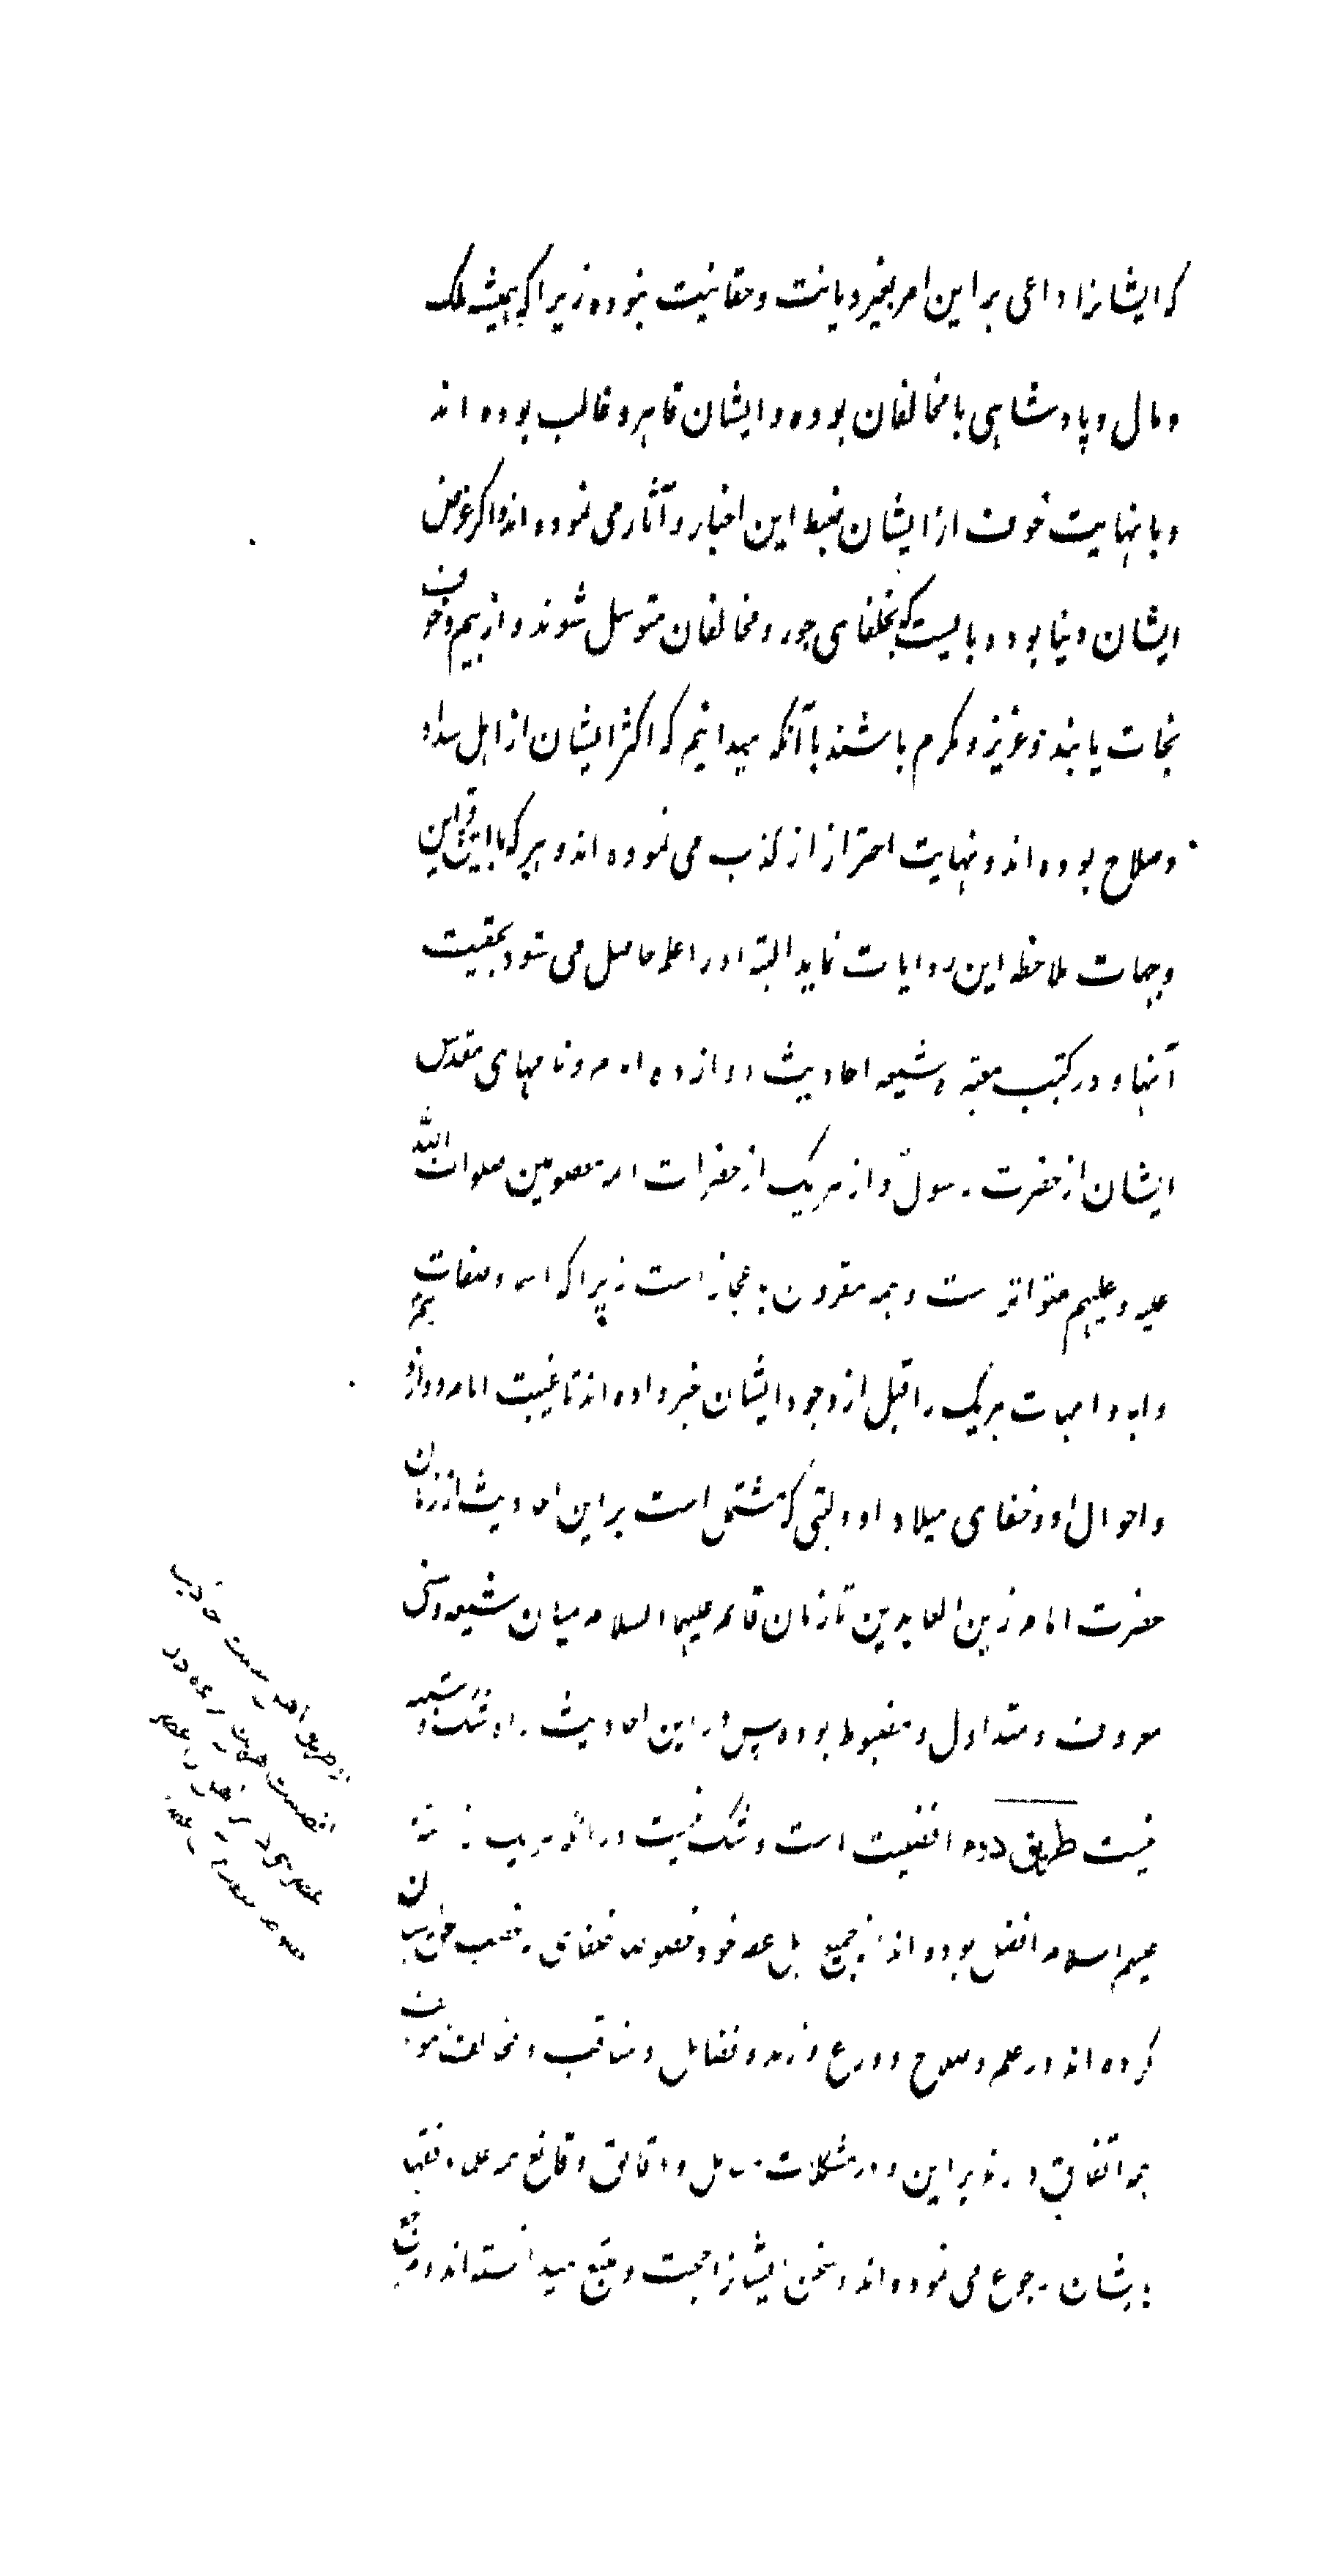 که ایشانرا داعی بر این امر بغیر دیانت و حقانیت نبوده زیرا که همیشه ملک
و مال و پادشاهی با مخالفان بوده و ایشان قاهر و غالب بوده اند
و با نهایت خوف از ایشان ضبط این اخبار و آثار می نموده اند و اگر غرض
ایشان دنیا بود و بایست که بخلفای جور و مخالفان متوسل شوند و از بیم و خوف
نجات یابند و عزیز و مکرم باشند با آنکه میدانیم که اکثر ایشان از اهل سداد
و صلاح بوده اند و نهایت احتراز از کذب می نموده اند و هر که با این قراین
و جهات ملاحظه این روایات نماید البته او را علم حاصل می شود بحقیت
آنها و در کتب معتبره شیعه احادیث دوازده امام و نامهای مقدس
ایشان از حضرت رسول و از هر یک از حضرات ائمه معصومین صلوات الله
علیه و علیهم متواتر ست و همه مقرون باعجاز است زیرا که اسم و صفات
و اب و امهات هر یک را قبل از وجود ایشان خبر داده اند تا غیبت امام دوازدهم
و احوال او و خفای میلاد او و کتبی که مشتمل است بر این احادیث از زمان
حضرت امام زین العابدین تا زمان قائم علیهما السلام میان شیعه و سنی
معروف و متداول و مضبوط بوده پس در این احادیث راه شک و شبهه
نیست طریق دوم افضلیت است و شک نیست در آنکه هر یک از ائمه
علیهم السلام افضل بوده اند از جمیع اهل عصر خود خصوصا خلفای که غصب حق ایشان
کرده اند در علم و صلاح و ورع و زهد و فضایل و مناقب و مخالف و مؤالف
همه اتفاق دارند بر این و در مشکلات مسایل و دقایق وقایع همه علما و فقها
بایشان رجوع می نموده اند و سخن ایشانرا حجت و متبع میدانسته اند و